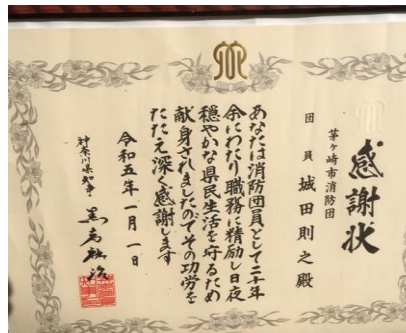 感謝状
茅ヶ崎市消防団
団員 城田則之殿
あなたは消防団員として二十年
余にわたり職務に精励し日夜
穏やかな県民生活を守るため
献身されましたのでその功労を
たたえ深く感謝します
令和五年一月一日
神奈川県知事 黒岩祐治